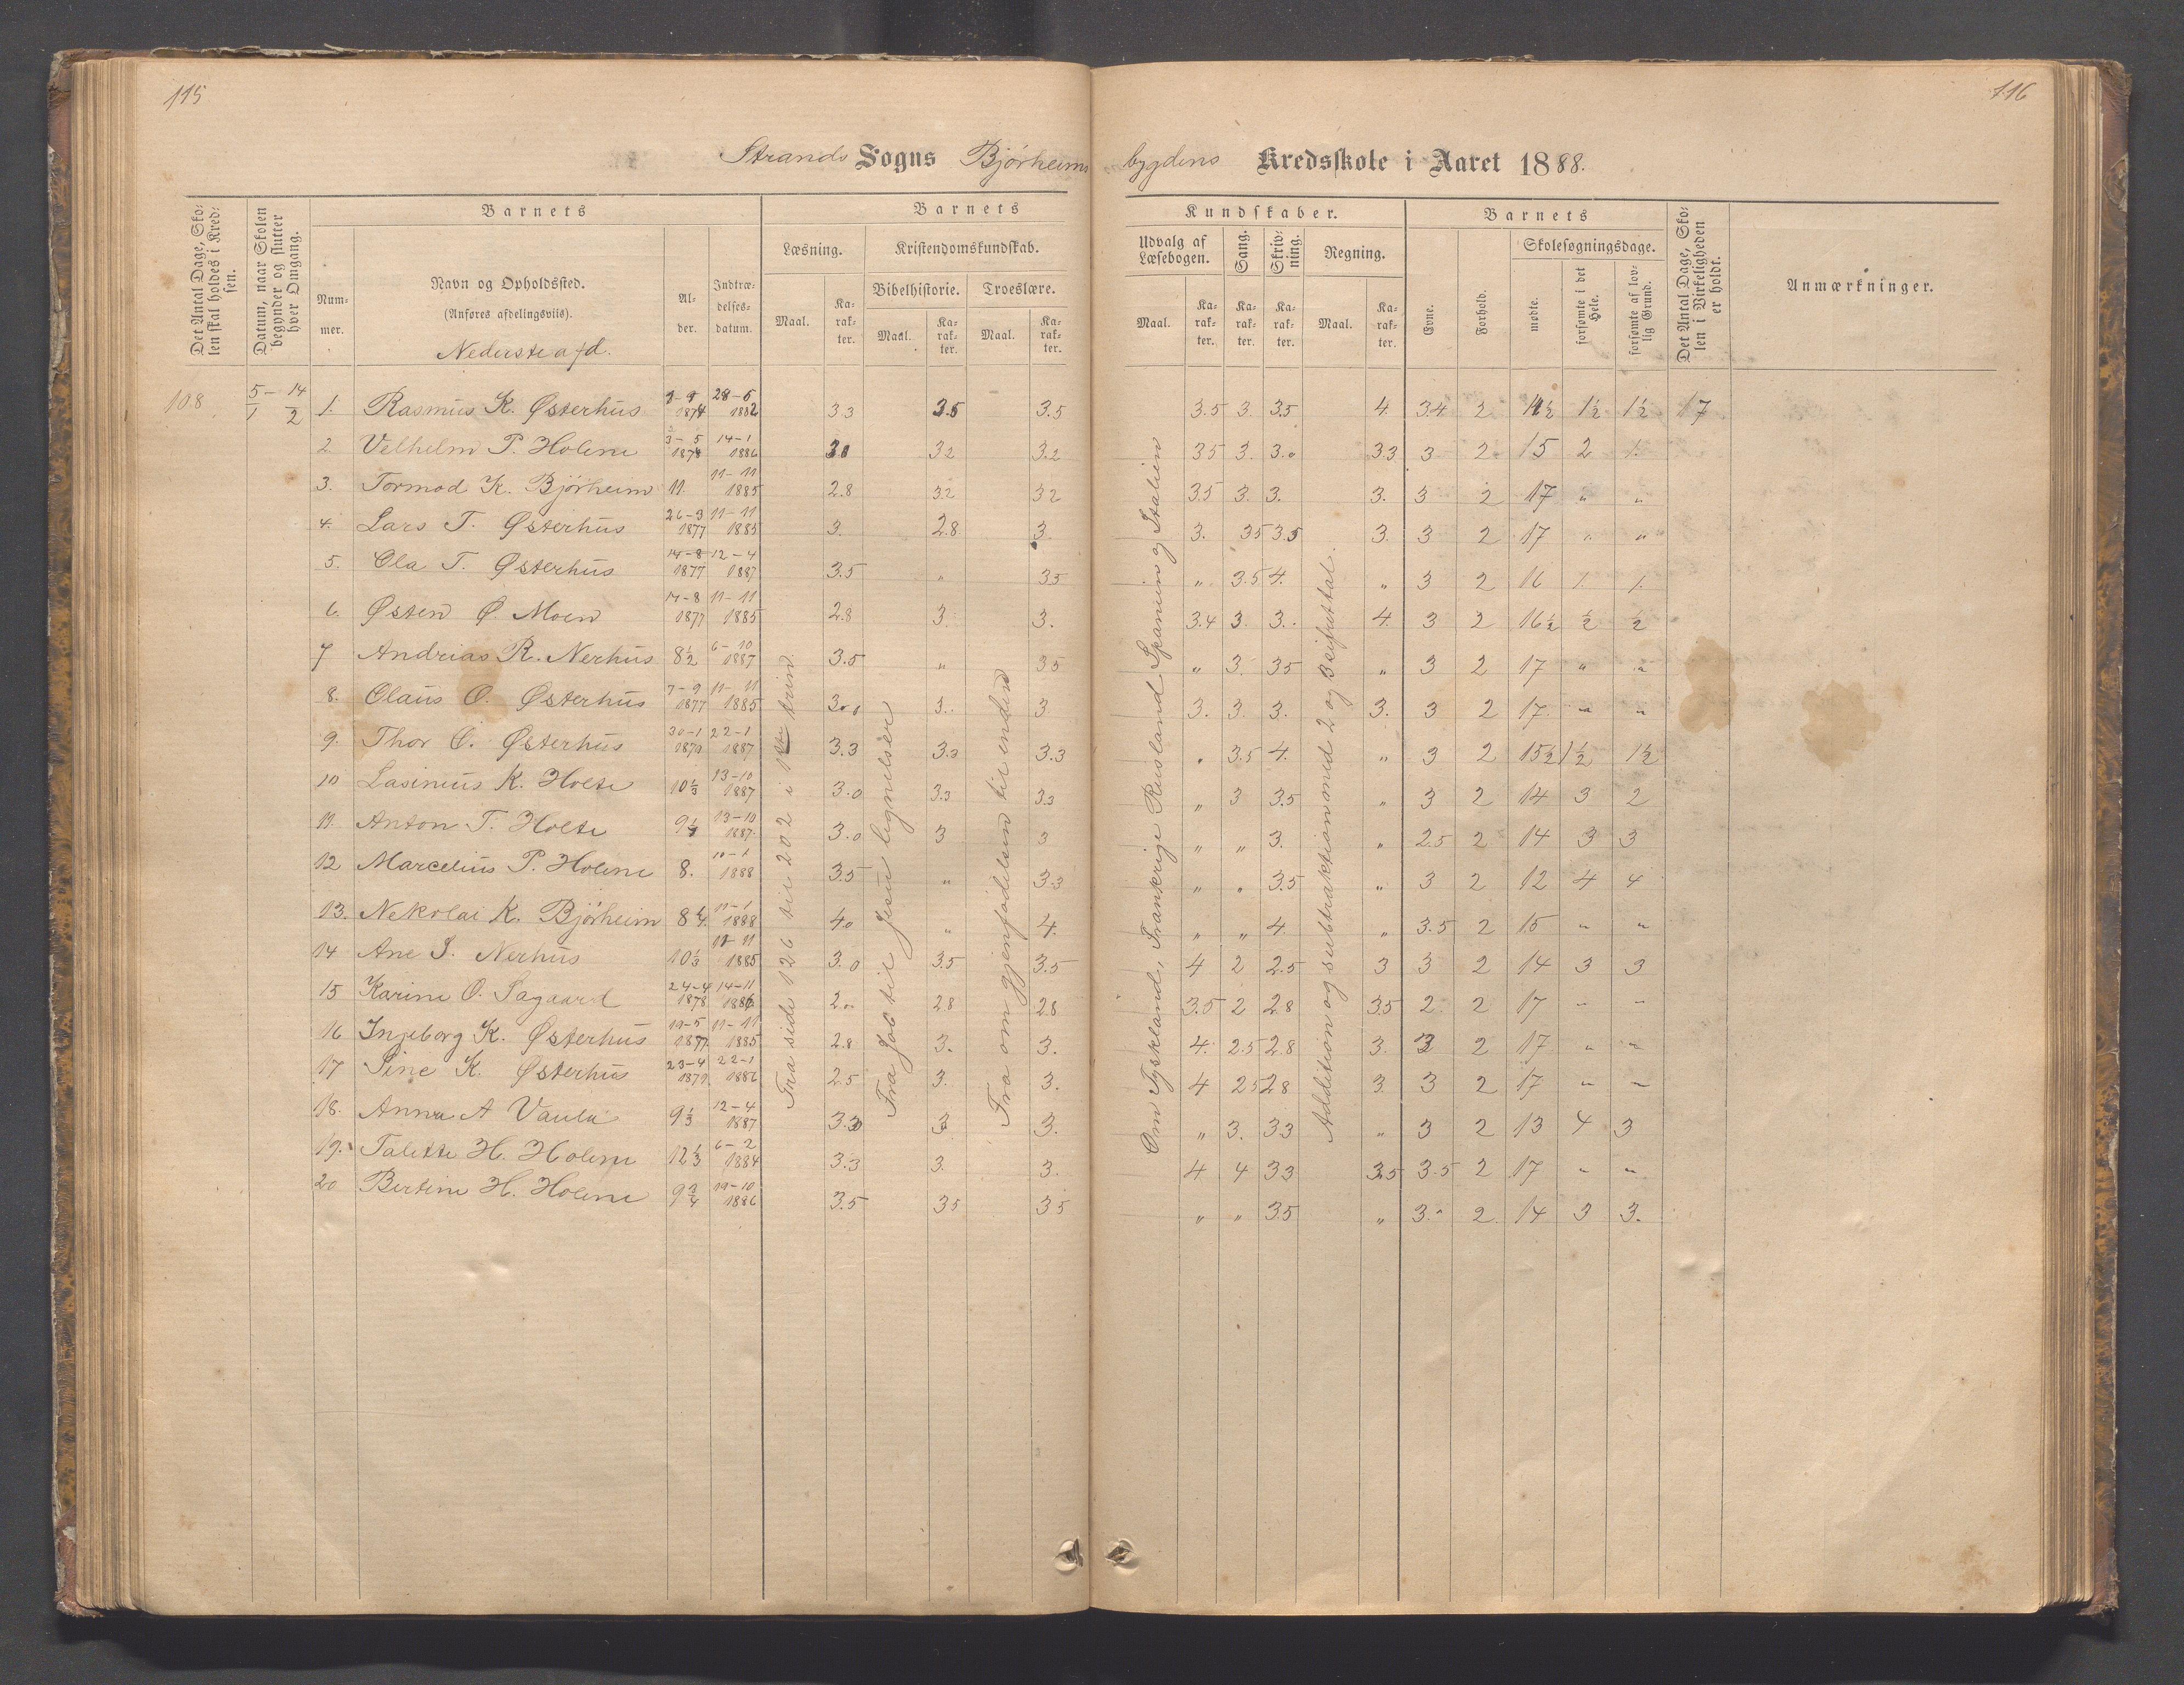 115
116
Strands Sogns Bjørheims
bygdens Kredsskole i Aaret 1888.
Det Antal Dage, Skolen skal holdes i Kredsen.
Datum, naar Skolen begynder og slutter hver Omgang.
Barnets
Barnets
Kundskaber.
Barnets
Det Antal Dage, Skolen i Virkeligheden er holdt.
Anmærkninger.
Nummer.
Navn og Opholdssted.
(Anføres afdelingsviis).
Nederste afd.
Alder.
Indtrædelsesdatum.
Læsning.
Kristendomskundskab.
Bibelhistorie.
Troeslære.
Maal.
Karakter.
Maal.
Karakter.
Maal.
Karakter.
Udvalg af Læsebogen.
Sang.
Skrivning.
Regning.
Maal.
Karakter.
Karakter.
Karakter.
Maal.
Karakter.
Evne.
Forhold.
Skolesøgningsdage.
mødte.
forsømte i det Hele.
forsømte af lovlig Grund.
108 5/1 — 14/2 1. Rasmus K. Østerhus 1874 28-6 1882 3.3 3.5 3.5 3.5 3. 3.5 4. 3.4 2 1½ 1½ 17
2. Velhelm P. Holene 3-5 1878 14-1 1886 3.2 3.2 3.5 3. 3.0 3.3 3 2 15 2 1.
3. Tormod K. Bjørheim 11. 11-11 1885 2.8 3.2 3.2 3.5 3. 3. 3. 3 2 17 " "
4. Lars T. Østerhus 26-3 1877 11-11 1885 3. 2.8 3. 3. 3.5 3.5 3. 3 2 17 " "
5. Ola T. Østerhus 14-8 1877 12-4 1887 3.5 " 3.5 " 3.5 4. " 3 2 16 1. 1.
6. Østen Ø. Moen 14-8 1877 11-11 1885 2.8 3. 3. 3.4 3. 3. 4. 3 2 16½ ½ ½
7 Andrias R. Nerhus 8½ 6-10 1887 3.5 " 3.5 " 3. 3.5 " 3 2 17 " "
8. Olaus O. Østerhus 7-9 1877 11-11 1885 3.0 3. 3. 3. 3. 3. 3. 3 2 17. " "
9. Thor O. Østerhus 30-1 1879 22-1 1887 3.3 3.3 3.3 " 3.5 4. " 3 2 15½ 1½ 1½
10 Lasineus K. Holte 10⅓ 13-10 1887 3.0 3.3 3.3 " 3 3.5 " 3 2 14 3 2
11. Anton T. Holte 13-10 1887. 3.0 3 3 " " 3. " 2.5 2 14 3 3
12 Marcelius P. Holene 8. 10-1 1888 3.5 " 3.3 " " 3.5 " 3 2 12 4 4
13. Nekolai K. Bjørheim 8¼ 11-1 1888 4.0 " 4. " " 4. " 3.5 2 15 " "
14 Ane S. Nerhus 10⅓ 11-11 1885 3.0 3.5 3.5 4 2 2.5 3 3 2 14 3 3
15 Karine O. Sagaard 24-4 1878 14-11 1886 2. 2.8 2.8 3.5 2 2.8 3.5 2 2 17 " "
16 Ingeborg K. Østerhus 19-5 1877 11-11 1885 2.8 3. 3. 4. 2.5 2.8 3. 3 2 17 " "
17 Sine K. Østerhus 23-4 1879 22-1 1886 2.5 3. 3. 4 2.5 2.8 3. 3 2 17 " "
18. Anna A Vaula 9⅓ 12-4 1887 3.3 3 3. " 3. 3.3 " 3 2 13 4 3
19. Talette H. Holene 12⅓ 6-2 1884 3.3 3. 3. 4 4 3.3 3.5 3.5 2 17 " "
20 Bertine H. Holene 9¾ 19-10 1886 3.5 3.5 3.5 " " 3.5 " 3. 2. 14 3 3.
Fra side 126 til 202 i 1ste trind.
Fra Job til Jesu lignelser
Fra om gjenfødelsen til enden
Om Tyskland, Frankrige Rusland Spanien og Italien
Addition og subtraktion med 2 og 3 eifrettal.